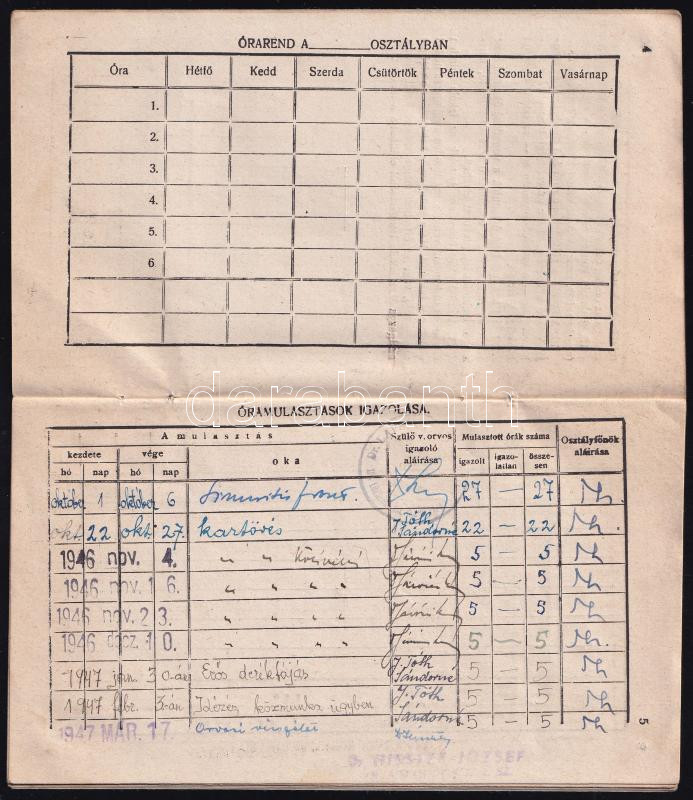 ÓRAREND A________OSZTÁLYBAN
Óra Hétfő Kedd Szerda Csütörtök Péntek Szombat Vasárnap
1.
2.
3.
4.
5.
6
darabanth
ÓRAMULASZTÁSOK IGAZOLÁSA.
A mulasztás
kezdete vége
hó nap hó nap
oka
Szülő v. orvos igazoló aláírása
Mulasztott órák száma
igazolt igazolatlan összesen
Osztályfőnök aláírása
október 1 október 6 27 — 27
okt. 22 okt. 27. kartörés J. Tóth Sándorné 22 — 22
1946 nov. 4. " " 5 — 5
1946 nov. 1 6. " " " " 5 — 5
1946 nov. 2 3. " " " " 5 — 5
1946 decz. 1 0. " " " " 5 — 5
1947 jan. 30-án Erős derékfájás J. Tóth Sándorné 5 — 5
1947 febr. 3-án Idézés közmunka ügyben J. Tóth Sándorné 5 — 5
1947 MÁR. 17. Orvosi vizsgálat 5 — 5
5
JÓZSEF